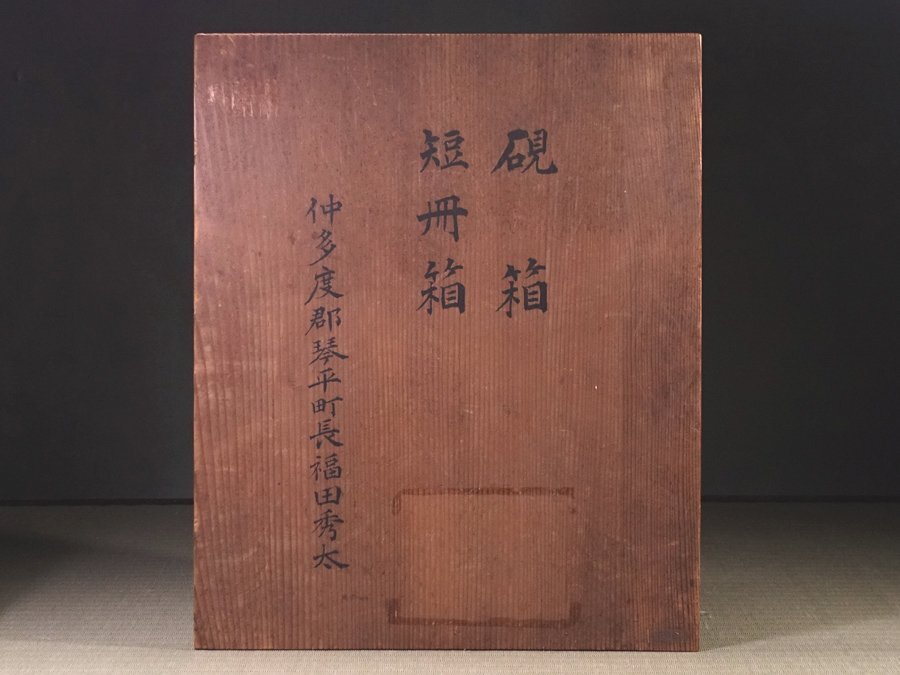 硯箱
短冊箱
仲多度郡琴平町長福田秀太